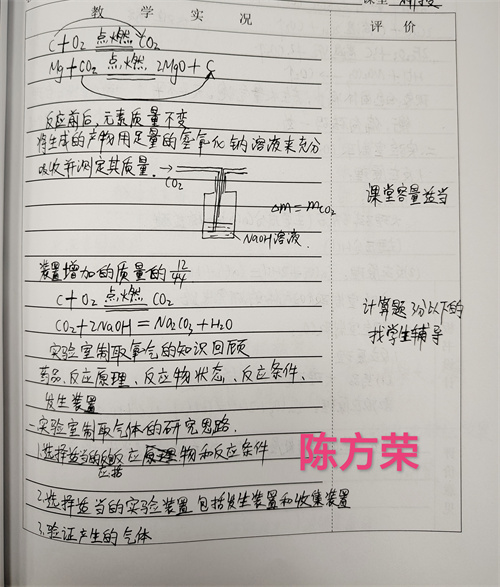 教 学 实 况
评 价
C+O₂ 点燃 CO₂
Mg+CO₂ 点燃 2MgO+C
反应前后,元素质量不变
将生成的产物用足量的氢氧化钠溶液来充分
吸收并测定其质量.
CO₂
Δm=mCO₂
NaOH溶液.
课堂容量适当
装置增加的质量的12/44
C+O₂ 点燃 CO₂
CO₂+2NaOH=Na₂CO₃+H₂O
计算题3分以下的
找学生辅导
实验室制取氧气的知识回顾
药品、反应原理、反应物状态、反应条件、
发生装置
二实验室制取气体的研究思路.
1.选择适当的反应原理物和反应条件
陈方荣
2.选择适当的实验装置 包括发生装置和收集装置
3.验证产生的气体